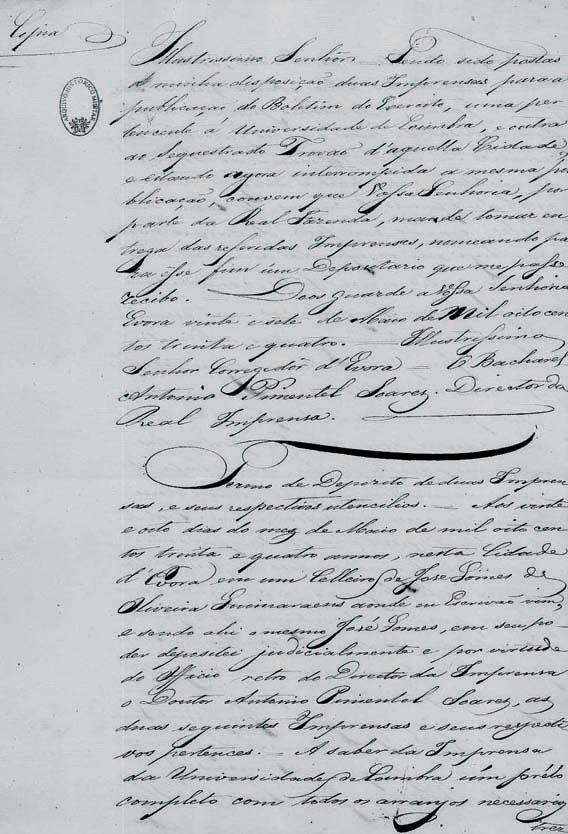 Copia
ARQUIVO HISTÓRICO MILITAR
Illustrissimo Senhor = Tendo sido postas
á minha disposição duas Imprensas para a
publicação do Boletim do Exercito, uma per
tencente á Universidade de Coimbra, e outra
ao Sequestrado Trovão d'aquella Cidade
e estando agora interrompida a mesma pu
blicação, convem que Vossa Senhoria, por
parte da Real Fazenda, mande tomar en
trega das referidas Imprensas, nomeando pa
ra esse fim um Depositario que me passe
recibo. — Deos guarde a Vossa Senhoria
Evora vinte e sete de Maio de Mil oito cen
tos trinta e quatro. — Illustrissimo
Senhor Corregedor d'Evora — O Bacharel
Antonio Pimentel Soares. Director da
Real Imprensa.
Termo de Deposito de duas Impren
sas, e seus respectivos utencilios. — Aos vinte
e octo dias do mez de Maio de mil oito cen
tos trinta e quatro annos, nesta Cidade
d'Evora em um Celleiro de José Gomes de
Oliveira Guimaraens donde eu Escrivão vim,
e sendo ahi o mesmo José Gomes, em seu po
der depositei judicialmente e por virtude
do Officio retro do Director da Imprensa
o Doutor Antonio Pimentel Soares, as
duas seguintes Imprensas e seus respecti
vos pertences. — A saber da Imprensa
da Universidade de Coimbra um prélo
completo com todos os arranjos necessarios,
trez